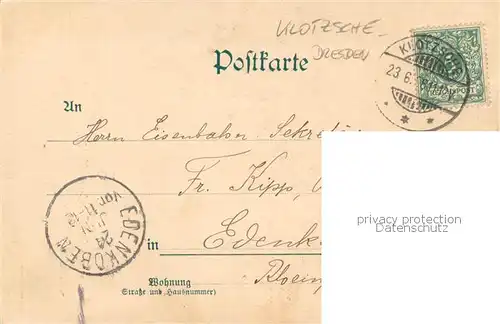 KLOTZSCHE
DRESDEN
Postkarte
KLOTZSCHE
23 6.
REICHSPOST
An
Herrn Eisenbahn Sekre
Fr. Kipp,
EDENKOBEN
24
JUN
Vor 11-12
in Edenk
Rhein
Wohnung
(Straße und Hausnummer)
privacy protection
Datenschutz